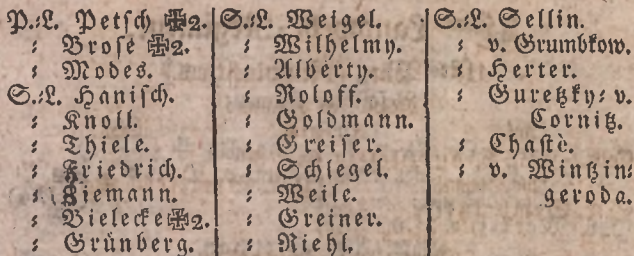 P.⸗L. Petsch ✠2.
⸗ Brose ✠2.
⸗ Modes.
S.⸗L. Hanisch.
⸗ Knoll.
⸗ Thiele.
⸗ Friedrich.
⸗ Ziemann.
⸗ Bielecke ✠2.
⸗ Grünberg.
S.⸗L. Weigel.
⸗ Wilhelmy.
⸗ Alberty.
⸗ Roloff.
⸗ Goldmann.
⸗ Greiser.
⸗ Schlegel.
⸗ Weile.
⸗ Greiner.
⸗ Riehl.
S.⸗L. Sellin.
⸗ v. Grumbkow.
⸗ Herter.
⸗ Guretzky⸗ v.
Cornitz.
⸗ Chastè.
⸗ v. Wintzin⸗
geroda.